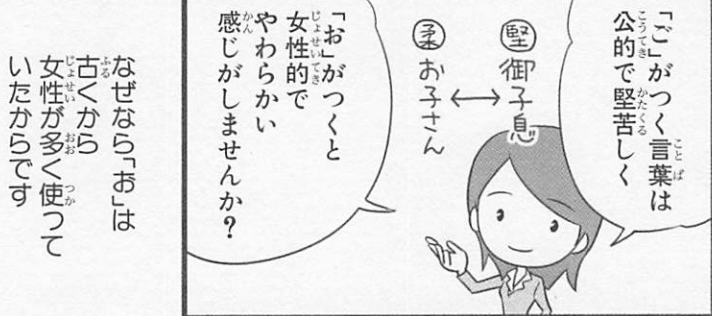 「ご」がつく言葉は
公的で堅苦しく
堅 御子息
↔
柔 お子さん
「お」がつくと
女性的で
やわらかい
感じがしませんか?
なぜなら「お」は
古くから
女性が多く使って
いたからです